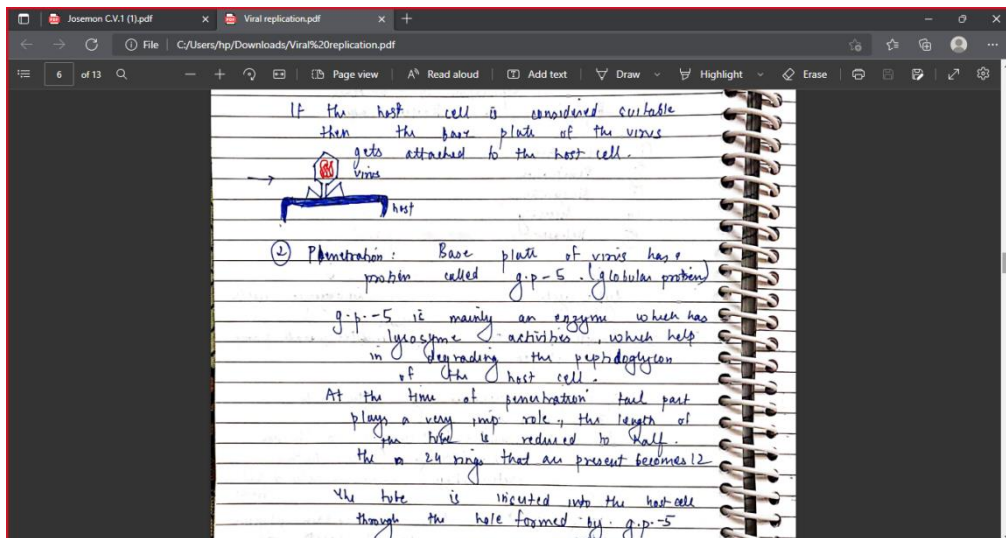 Josemon C.V.1 (1).pdf
Viral replication.pdf
File C:/Users/hp/Downloads/Viral%20replication.pdf
6 of 13 Page view Read aloud Add text Draw Highlight Erase
If the host cell is considered suitable
then the base plate of the virus
gets attached to the host cell.
virus
host
2 Penetration: Base plate of virus has a
protein called g.p-5. (globular protein)
g.p.-5 is mainly an enzyme which has
lysosyme activities, which help
in degrading the peptidoglycon
of the host cell.
At the time of penentration tail part
plays a very imp role, the length of
the tube is reduced to half.
the 24 rings that are present becomes 12
The tube is incuted into the host cell
through the hole formed by g.p.-5